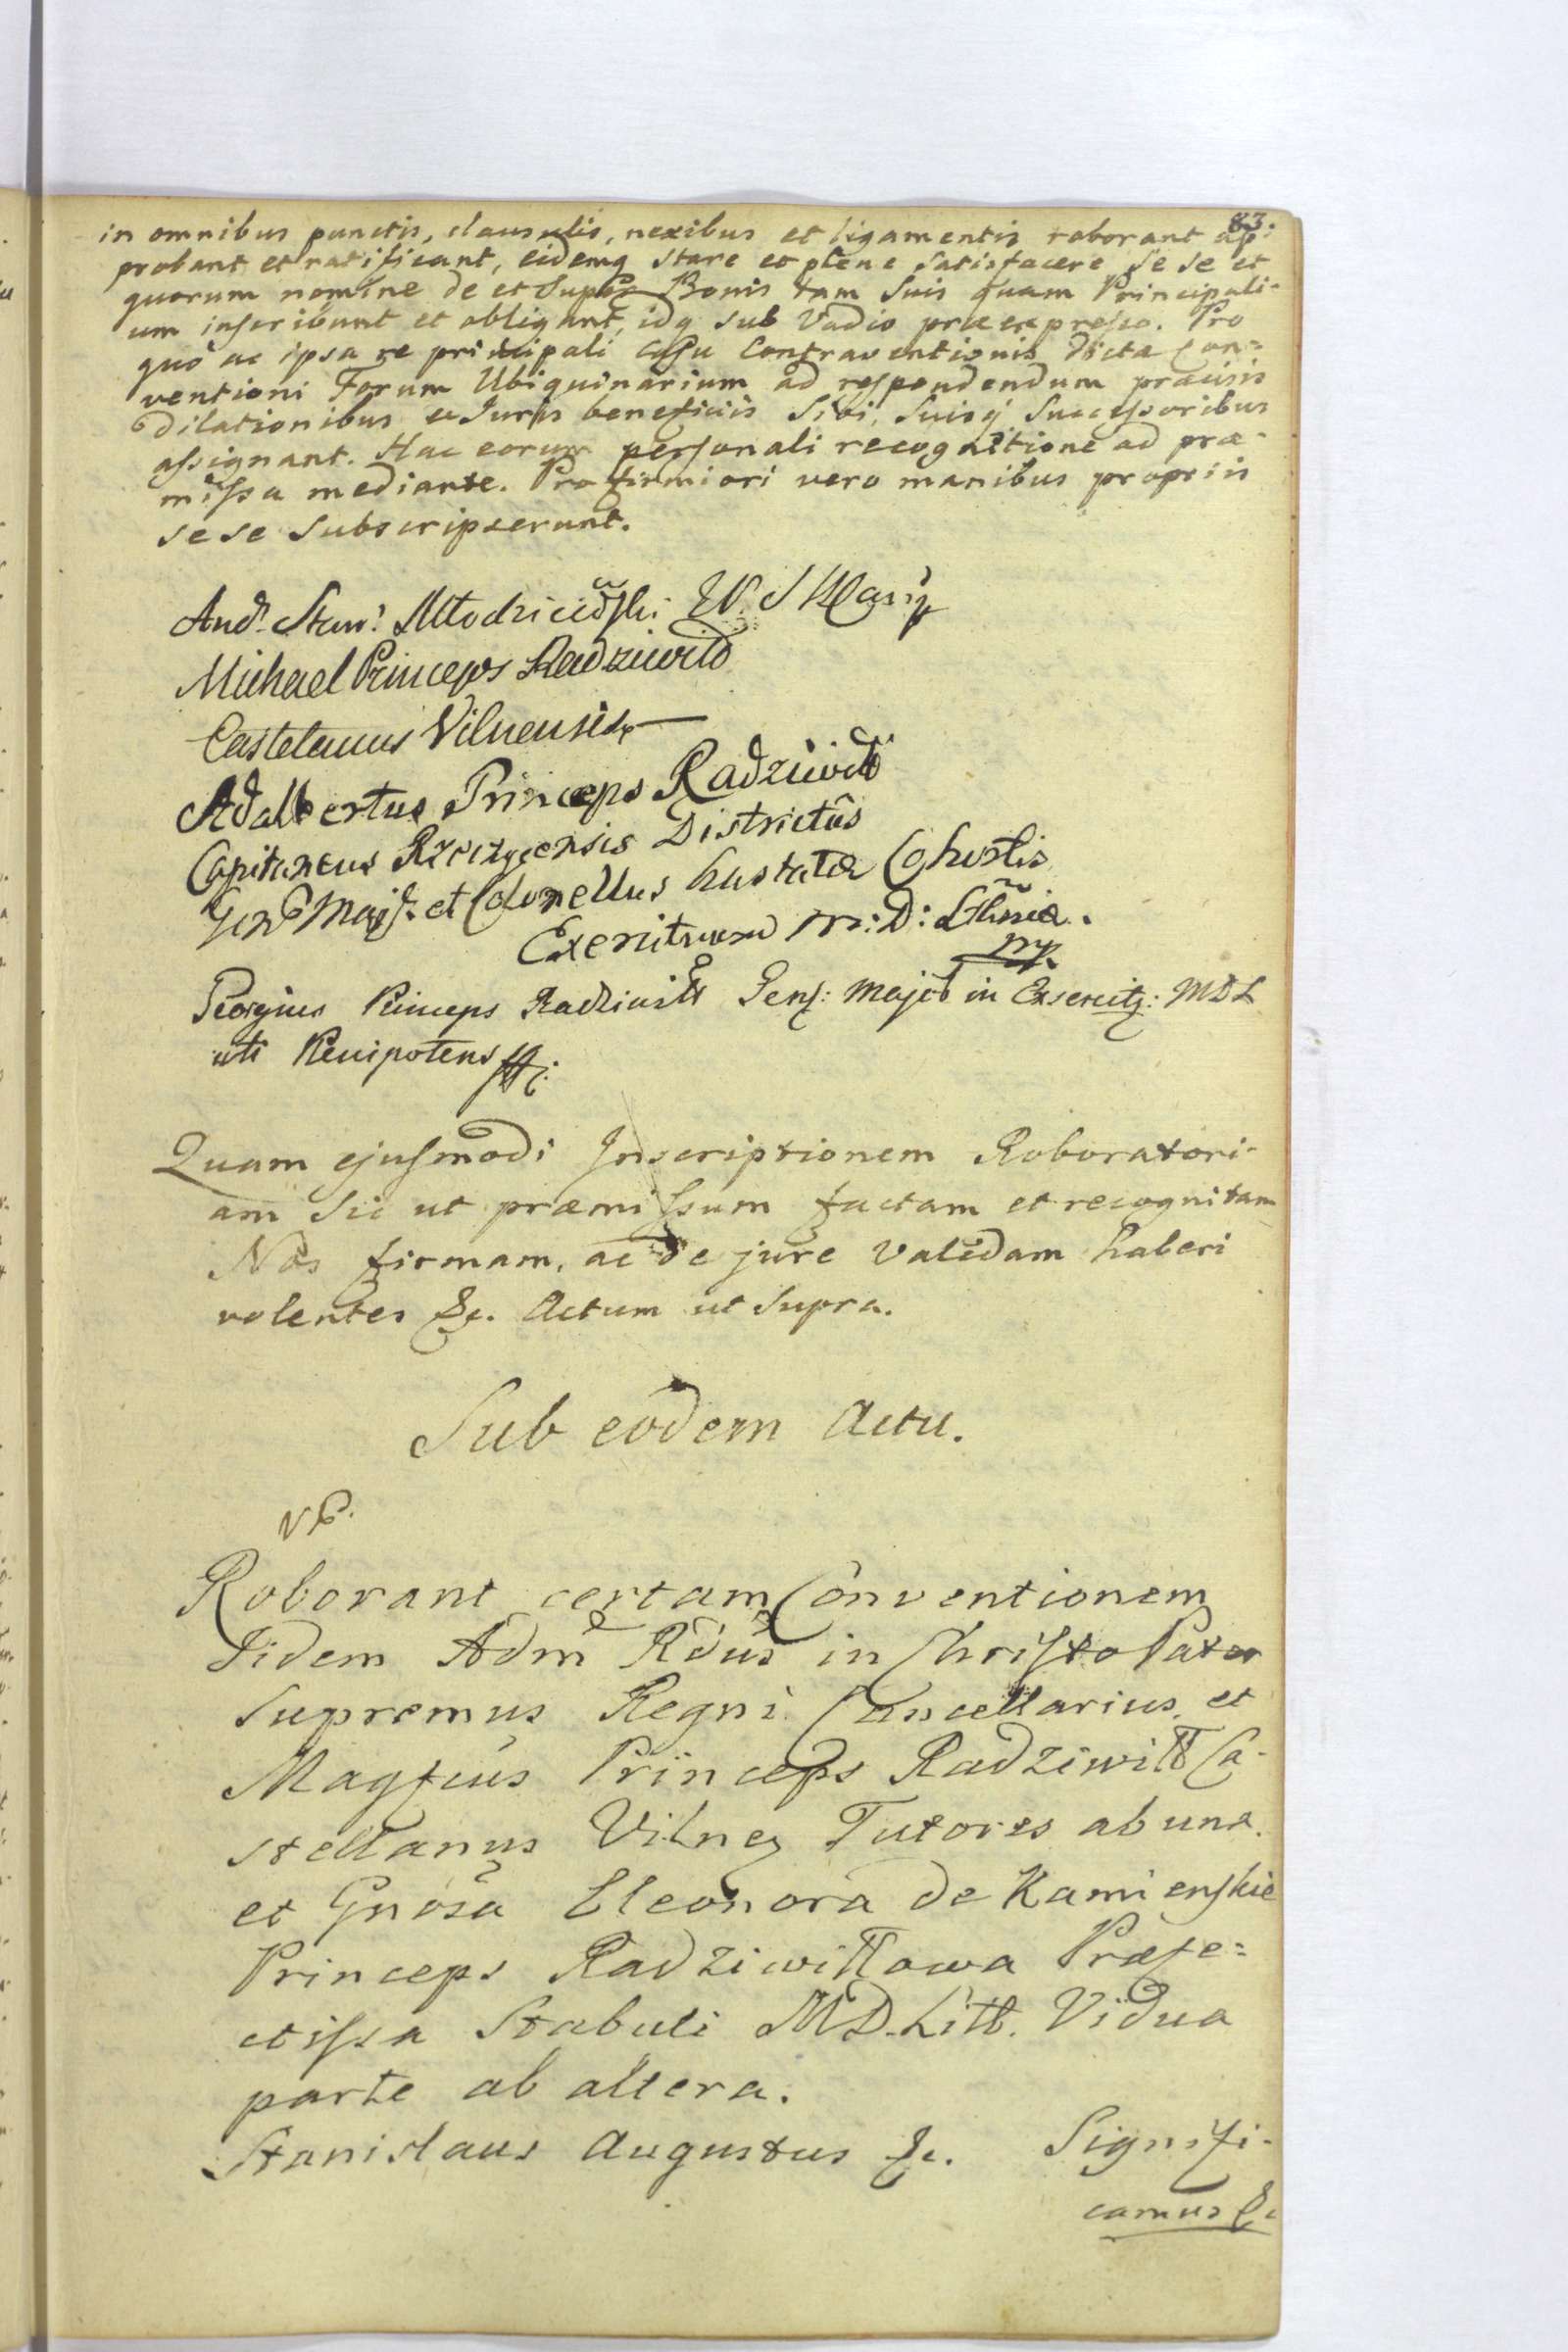 83.
in omnibus punctis, clausulis, nexibus et ligamentis roborant ap-
probant et ratificant, eidemq stare eo plene satisfacere se se et
quorum nomine de et super Bonis tam suis quam Principali-
um inscribunt et obligant, idq sub Vadio præexpresso. Pro
quo ac ipsa re principali casu Contraventionis dicta Con=
ventioni Forum Ubiquinarium ad respondendum præcisis
dilationibus ac Juris beneficiis sibi, suisq successoribus
assignant. Hac eorum personali recognitione ad præ-
missa mediante. Pro firmiori vero manibus propriis
sese subscripserunt.
And. Stan: Młodzieiowski
Michael Princeps Radziwiłł
Castelanus Vilnensis
Adalbertus Princeps Radziwiłł
Capitaneus Rzeczycensis Districtûs
Gen Maj. et Colonellus hastatæ Cohortis
Exercituum M: D: Lthuiæ.
mp.
Georgius Princeps Radziwiłł Gen: major in Exercitg: MDL
uti Plenipotens
Quam ejusmodi Inscriptionem Roboratori-
am sic ut præmissum factam et recognitam
Nos firmam, ac de jure validam haberi
volentes &c. Actum ut supra.
Sub eodem Actu.
Roborant certam Conventionem
Iidem Adm Rdus in Christo Pater
Supremus Regni Cancellarius, et
Magfcus Princeps Radziwiłł Ca-
stellanus Vilneg Tutores ab una.
et Gnosa Eleonora de Kamienskie
Princeps Radziwiłłowa Præfe=
ctissa Stabuli M.D. Litt. Vidua
parte ab altera.
Stanislaus Augustus &c. Signifi-
camus &c